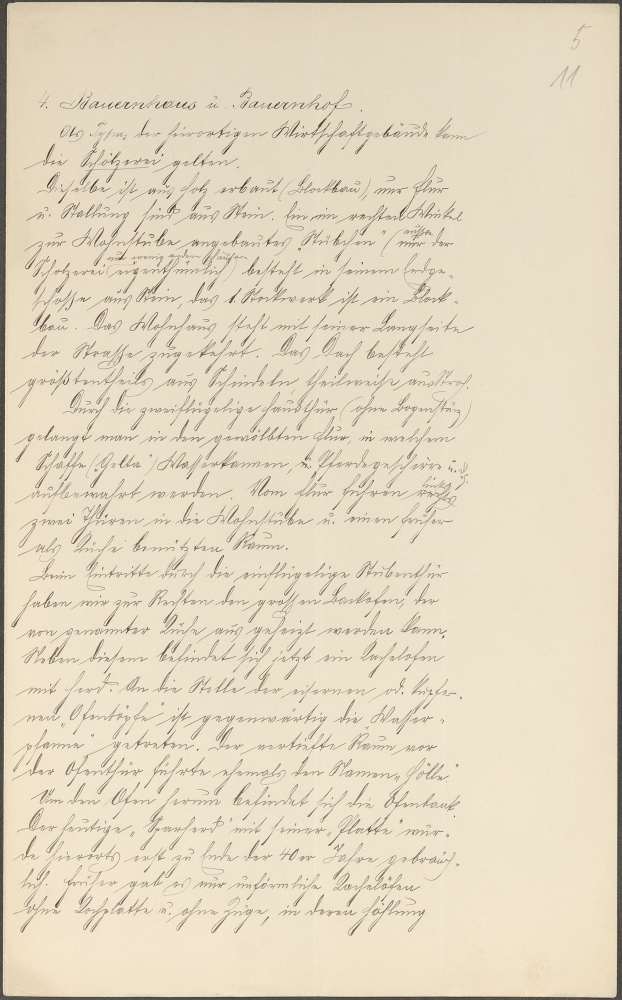 5
11
4. Bauernhaus u. Bauernhof.
Als Typus der hierortigen Wirtschaftsgebäude kann
die Scholzerei gelten.
Dieselbe ist aus Holz erbaut (Blockbau), nur Flur
u. Stallung sind aus Stein. Ein im rechten Winkel
zur Wohnstube angebautes „Stübchen" (außer nur der
mit wenig andern Häusern
Scholzerei eigenthümlich) besteht in seinem Erdge-
schosse aus Stein, das 1. Stockwerk ist ein Block-
bau. Das Wohnhaus steht mit seiner Langseite
der Strasse zugekehrt. Das Dach besteht
größtentheils aus Schindeln theilweise aus Stroh.
Durch die zweiflügelige Hausthür (ohne Bogenstürz)
gelangt man in den gewölbten Flur, in welchem
Schaffe („Gelte") Wasserkannen, u. Pferdegeschirre u. d. g.
aufbewahrt werden. Vom Flur führen rechts
links
zwei Thüren in die Wohnstube u. einen früher
als Küche benützten Raum.
Beim Eintritte durch die einflügelige Stubenthür
haben wir zur Rechten den grossen Backofen, der
von genannter Küche aus geheizt werden kann.
Neben diesem befindet sich jetzt ein Kachelofen
mit Herd. An die Stelle der eisernen od. kupfer-
nen „Ofentöpfe" ist gegenwärtig die „Wasser-
pfanne" getreten. Der vertiefte Raum vor
der Ofenthür führte ehemals den Namen „Hölle"
Um den Ofen herum befindet sich die Ofenbank.
Der heutige „Sparherd" mit seiner „Platte" wur-
de hierorts erst zu Ende der 40er Jahre gebräuch-
lich. Früher gab es nur unförmliche Kachelöfen
ohne Kochplatte u. ohne Züge, in deren Höhlung